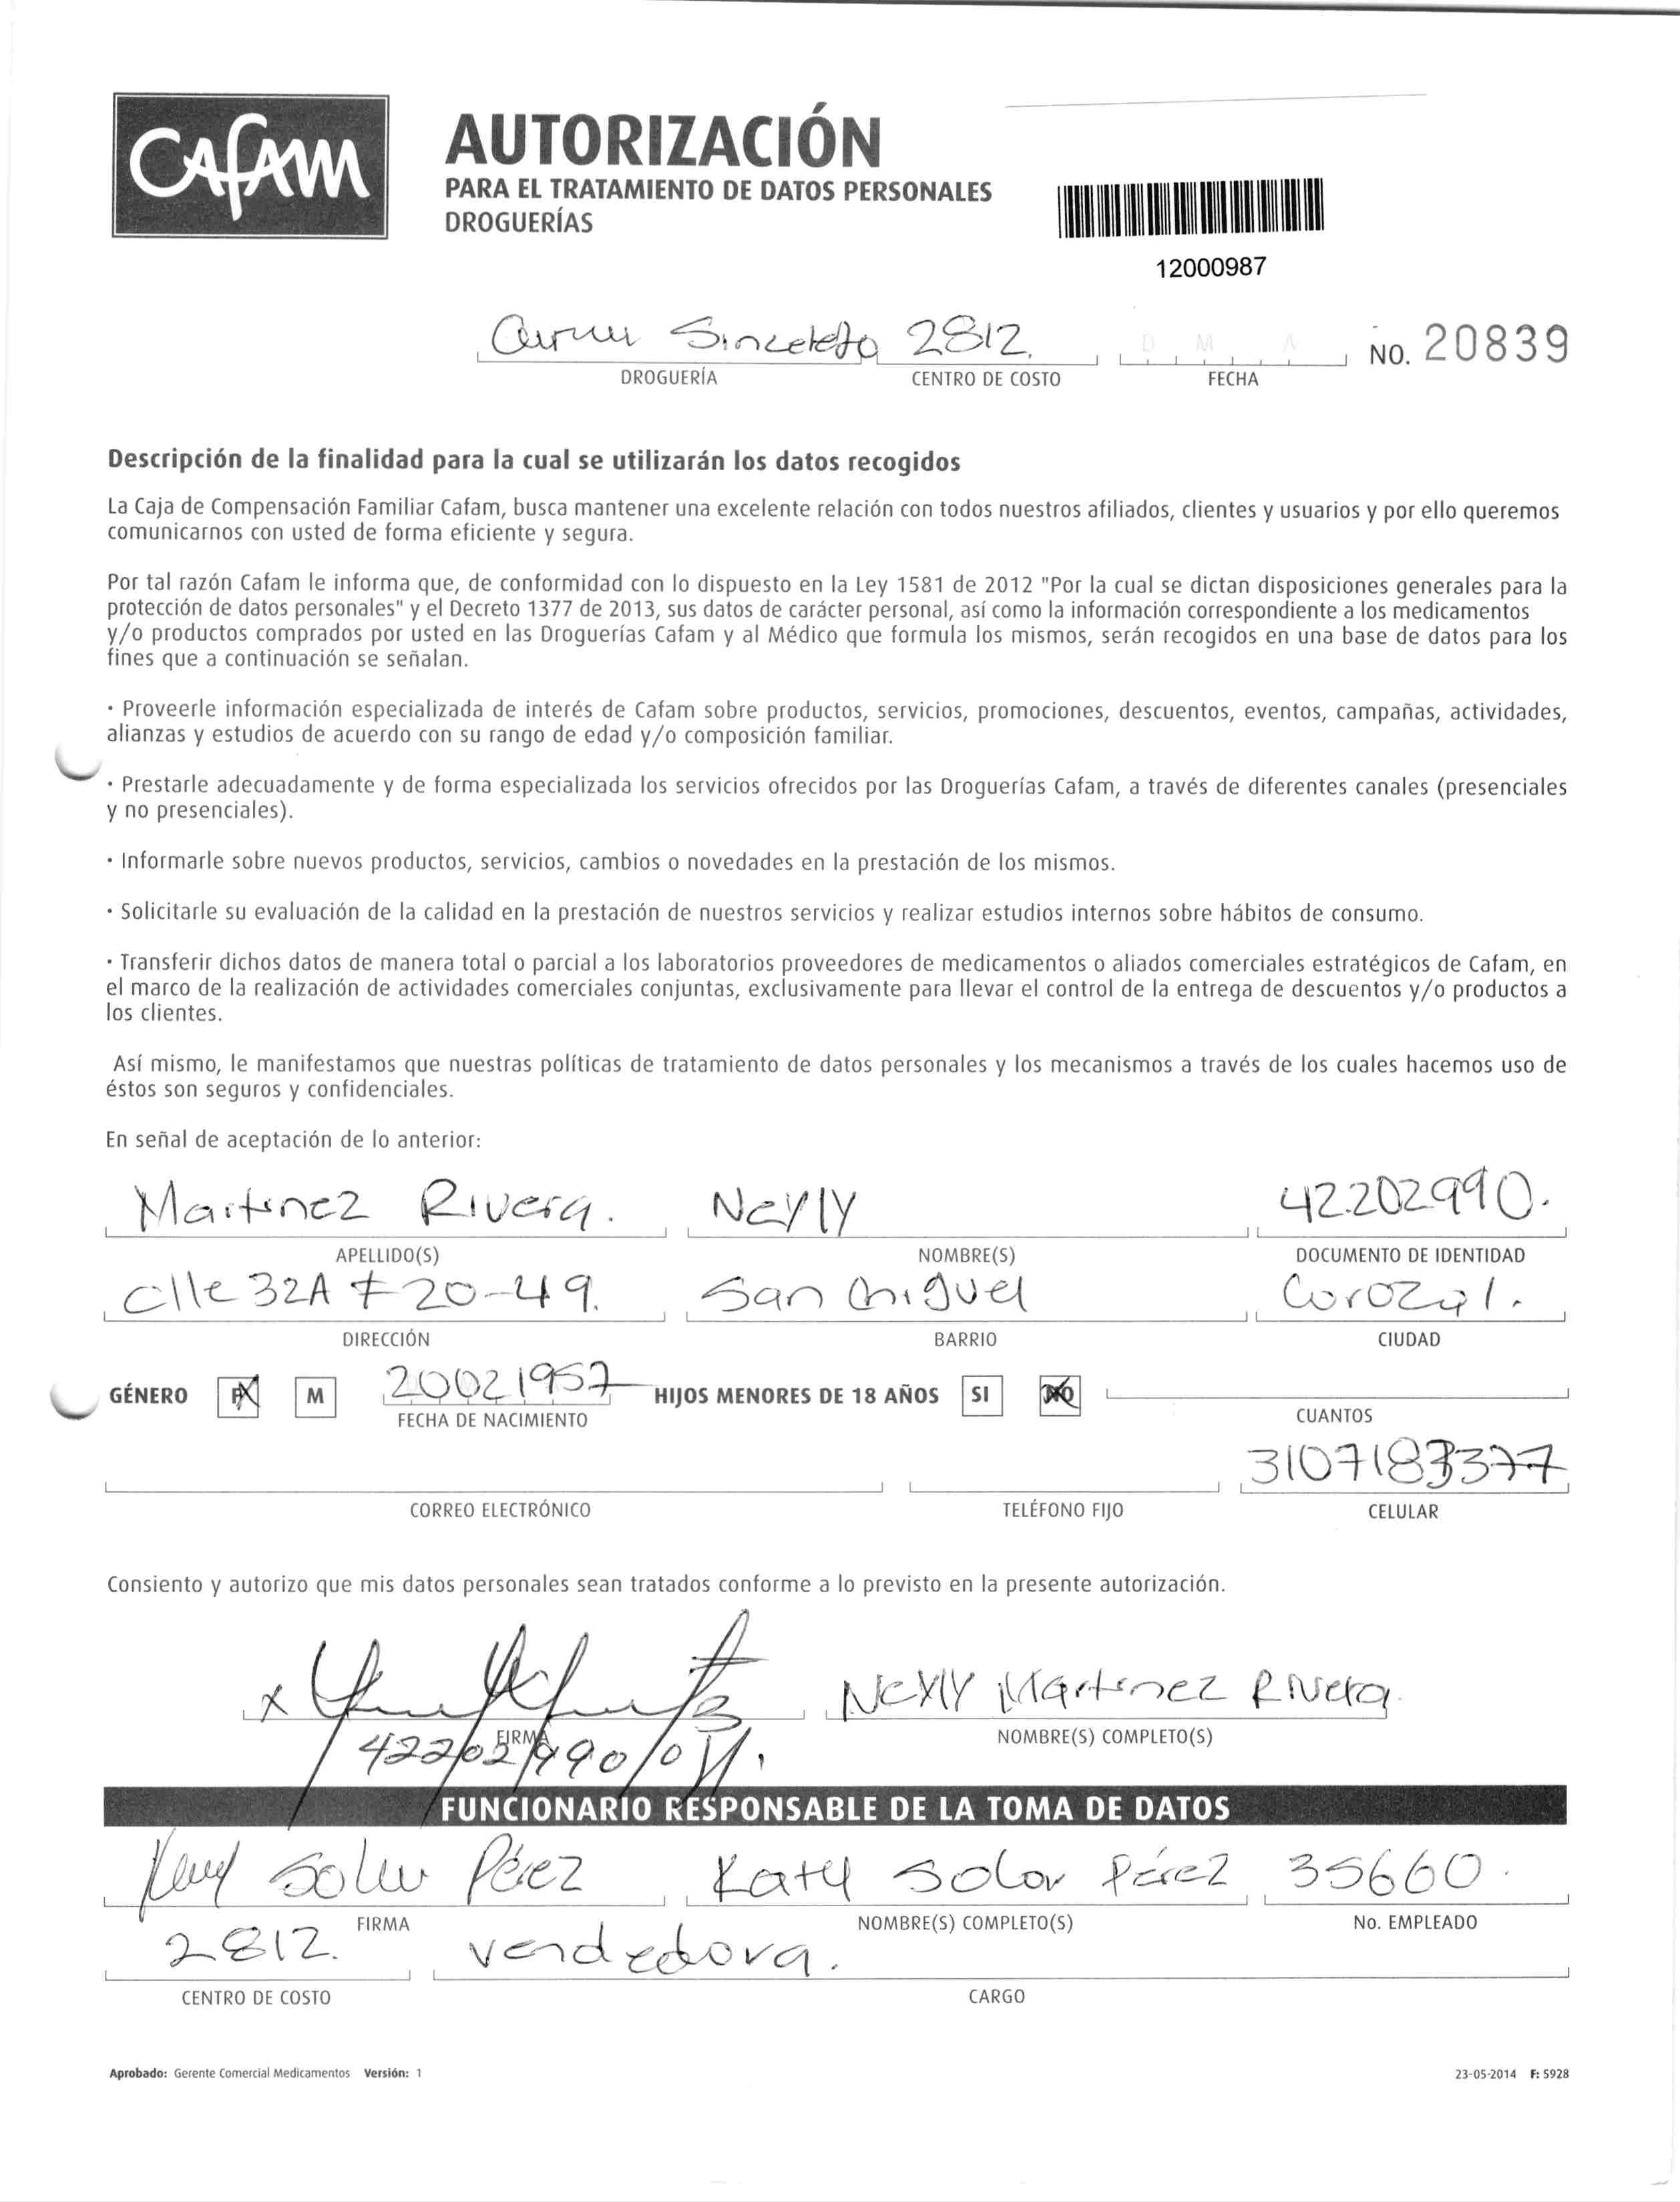 CAFAM
AUTORIZACIÓN
PARA EL TRATAMIENTO DE DATOS PERSONALES
DROGUERÍAS
12000987
Sincelejo 2812.
D M A
NO. 20839
DROGUERÍA CENTRO DE COSTO FECHA
Descripción de la finalidad para la cual se utilizarán los datos recogidos
La Caja de Compensación Familiar Cafam, busca mantener una excelente relación con todos nuestros afiliados, clientes y usuarios y por ello queremos
comunicarnos con usted de forma eficiente y segura.
Por tal razón Cafam le informa que, de conformidad con lo dispuesto en la Ley 1581 de 2012 "Por la cual se dictan disposiciones generales para la
protección de datos personales" y el Decreto 1377 de 2013, sus datos de carácter personal, así como la información correspondiente a los medicamentos
y/o productos comprados por usted en las Droguerías Cafam y al Médico que formula los mismos, serán recogidos en una base de datos para los
fines que a continuación se señalan.
· Proveerle información especializada de interés de Cafam sobre productos, servicios, promociones, descuentos, eventos, campañas, actividades,
alianzas y estudios de acuerdo con su rango de edad y/o composición familiar.
· Prestarle adecuadamente y de forma especializada los servicios ofrecidos por las Droguerías Cafam, a través de diferentes canales (presenciales
y no presenciales).
· Informarle sobre nuevos productos, servicios, cambios o novedades en la prestación de los mismos.
· Solicitarle su evaluación de la calidad en la prestación de nuestros servicios y realizar estudios internos sobre hábitos de consumo.
· Transferir dichos datos de manera total o parcial a los laboratorios proveedores de medicamentos o aliados comerciales estratégicos de Cafam, en
el marco de la realización de actividades comerciales conjuntas, exclusivamente para llevar el control de la entrega de descuentos y/o productos a
los clientes.
Así mismo, le manifestamos que nuestras políticas de tratamiento de datos personales y los mecanismos a través de los cuales hacemos uso de
éstos son seguros y confidenciales.
En señal de aceptación de lo anterior:
Martinez Rivera. Neyly 42.202990.
APELLIDO(S) NOMBRE(S) DOCUMENTO DE IDENTIDAD
clle 32A # 20-49. San Miguel Corozal.
DIRECCIÓN BARRIO CIUDAD
GÉNERO F M 20021957 HIJOS MENORES DE 18 AÑOS SI NO
FECHA DE NACIMIENTO CUANTOS
CORREO ELECTRÓNICO TELÉFONO FIJO CELULAR
Consiento y autorizo que mis datos personales sean tratados conforme a lo previsto en la presente autorización.
x Neyly Martinez Rivera
FIRMA NOMBRE(S) COMPLETO(S)
FUNCIONARIO RESPONSABLE DE LA TOMA DE DATOS
Pérez Katy Solar Pérez 35660.
FIRMA NOMBRE(S) COMPLETO(S) No. EMPLEADO
2812. vendedora.
CENTRO DE COSTO CARGO
Aprobado: Gerente Comercial Medicamentos Versión: 1 23-05-2014 F: 5928